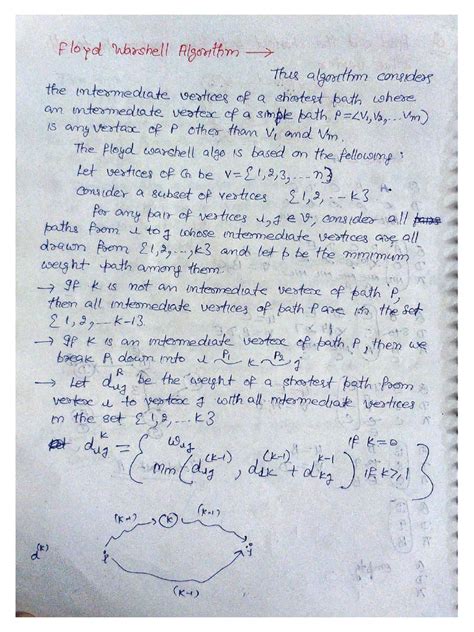 Floyd Warshell Algorithm →
This algorithm considers
the intermediate vertices of a shortest path where
an intermediate vertex of a simple path P=<V₁,V₂,...Vm>
is any vertex of P other than V₁ and Vm.
The floyd warshell algo is based on the following:
Let vertices of G be V={1,2,3,...n}
Consider a subset of vertices {1,2,...k}
for any pair of vertices i,j ∈ V, consider all
paths from i to j whose intermediate vertices are all
drawn from {1,2,...,k} and let p be the minimum
weight path among them
→ If k is not an intermediate vertex of path P,
then all intermediate vertices of path P are in the set
{1,2,...k-1}.
→ If k is an intermediate vertex of path P, then we
break P down into i P₁ k P₂ j
→ Let dij^k be the weight of a shortest path from
vertex i to vertex j with all intermediate vertices
in the set {1,2,...k}
dij^k = { wij if k=0
min(dij^(k-1), dik^(k-1) + dkj^k-1) if k≥1 }
(k-1) (k) (k-1)
d^(k) i j
(k-1)